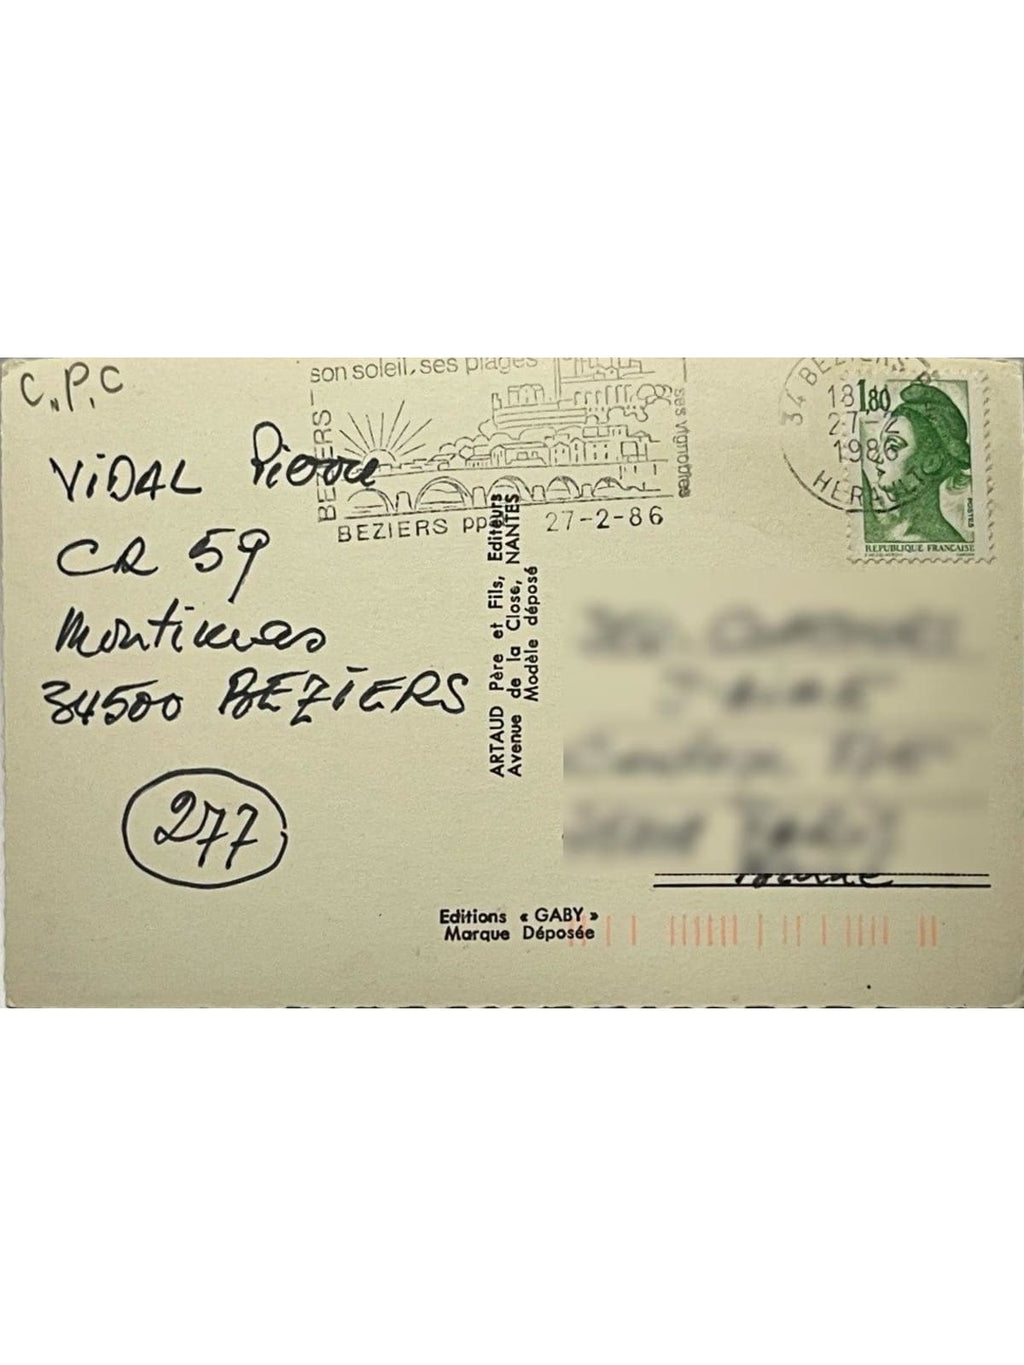 C.P.C
son soleil, ses plages
BEZIERS
ses vignobles
BEZIERS PP
27-2-86
34 BEZIERS
18
27-2
1986
HERAULT
1,80
POSTES
REPUBLIQUE FRANÇAISE
VIDAL Pierre
CR 59
Montimas
34500 BEZIERS
277
ARTAUD Père et Fils, Editeurs
Avenue de la Close, NANTES
Modèle déposé
Editions « GABY »
Marque Déposée